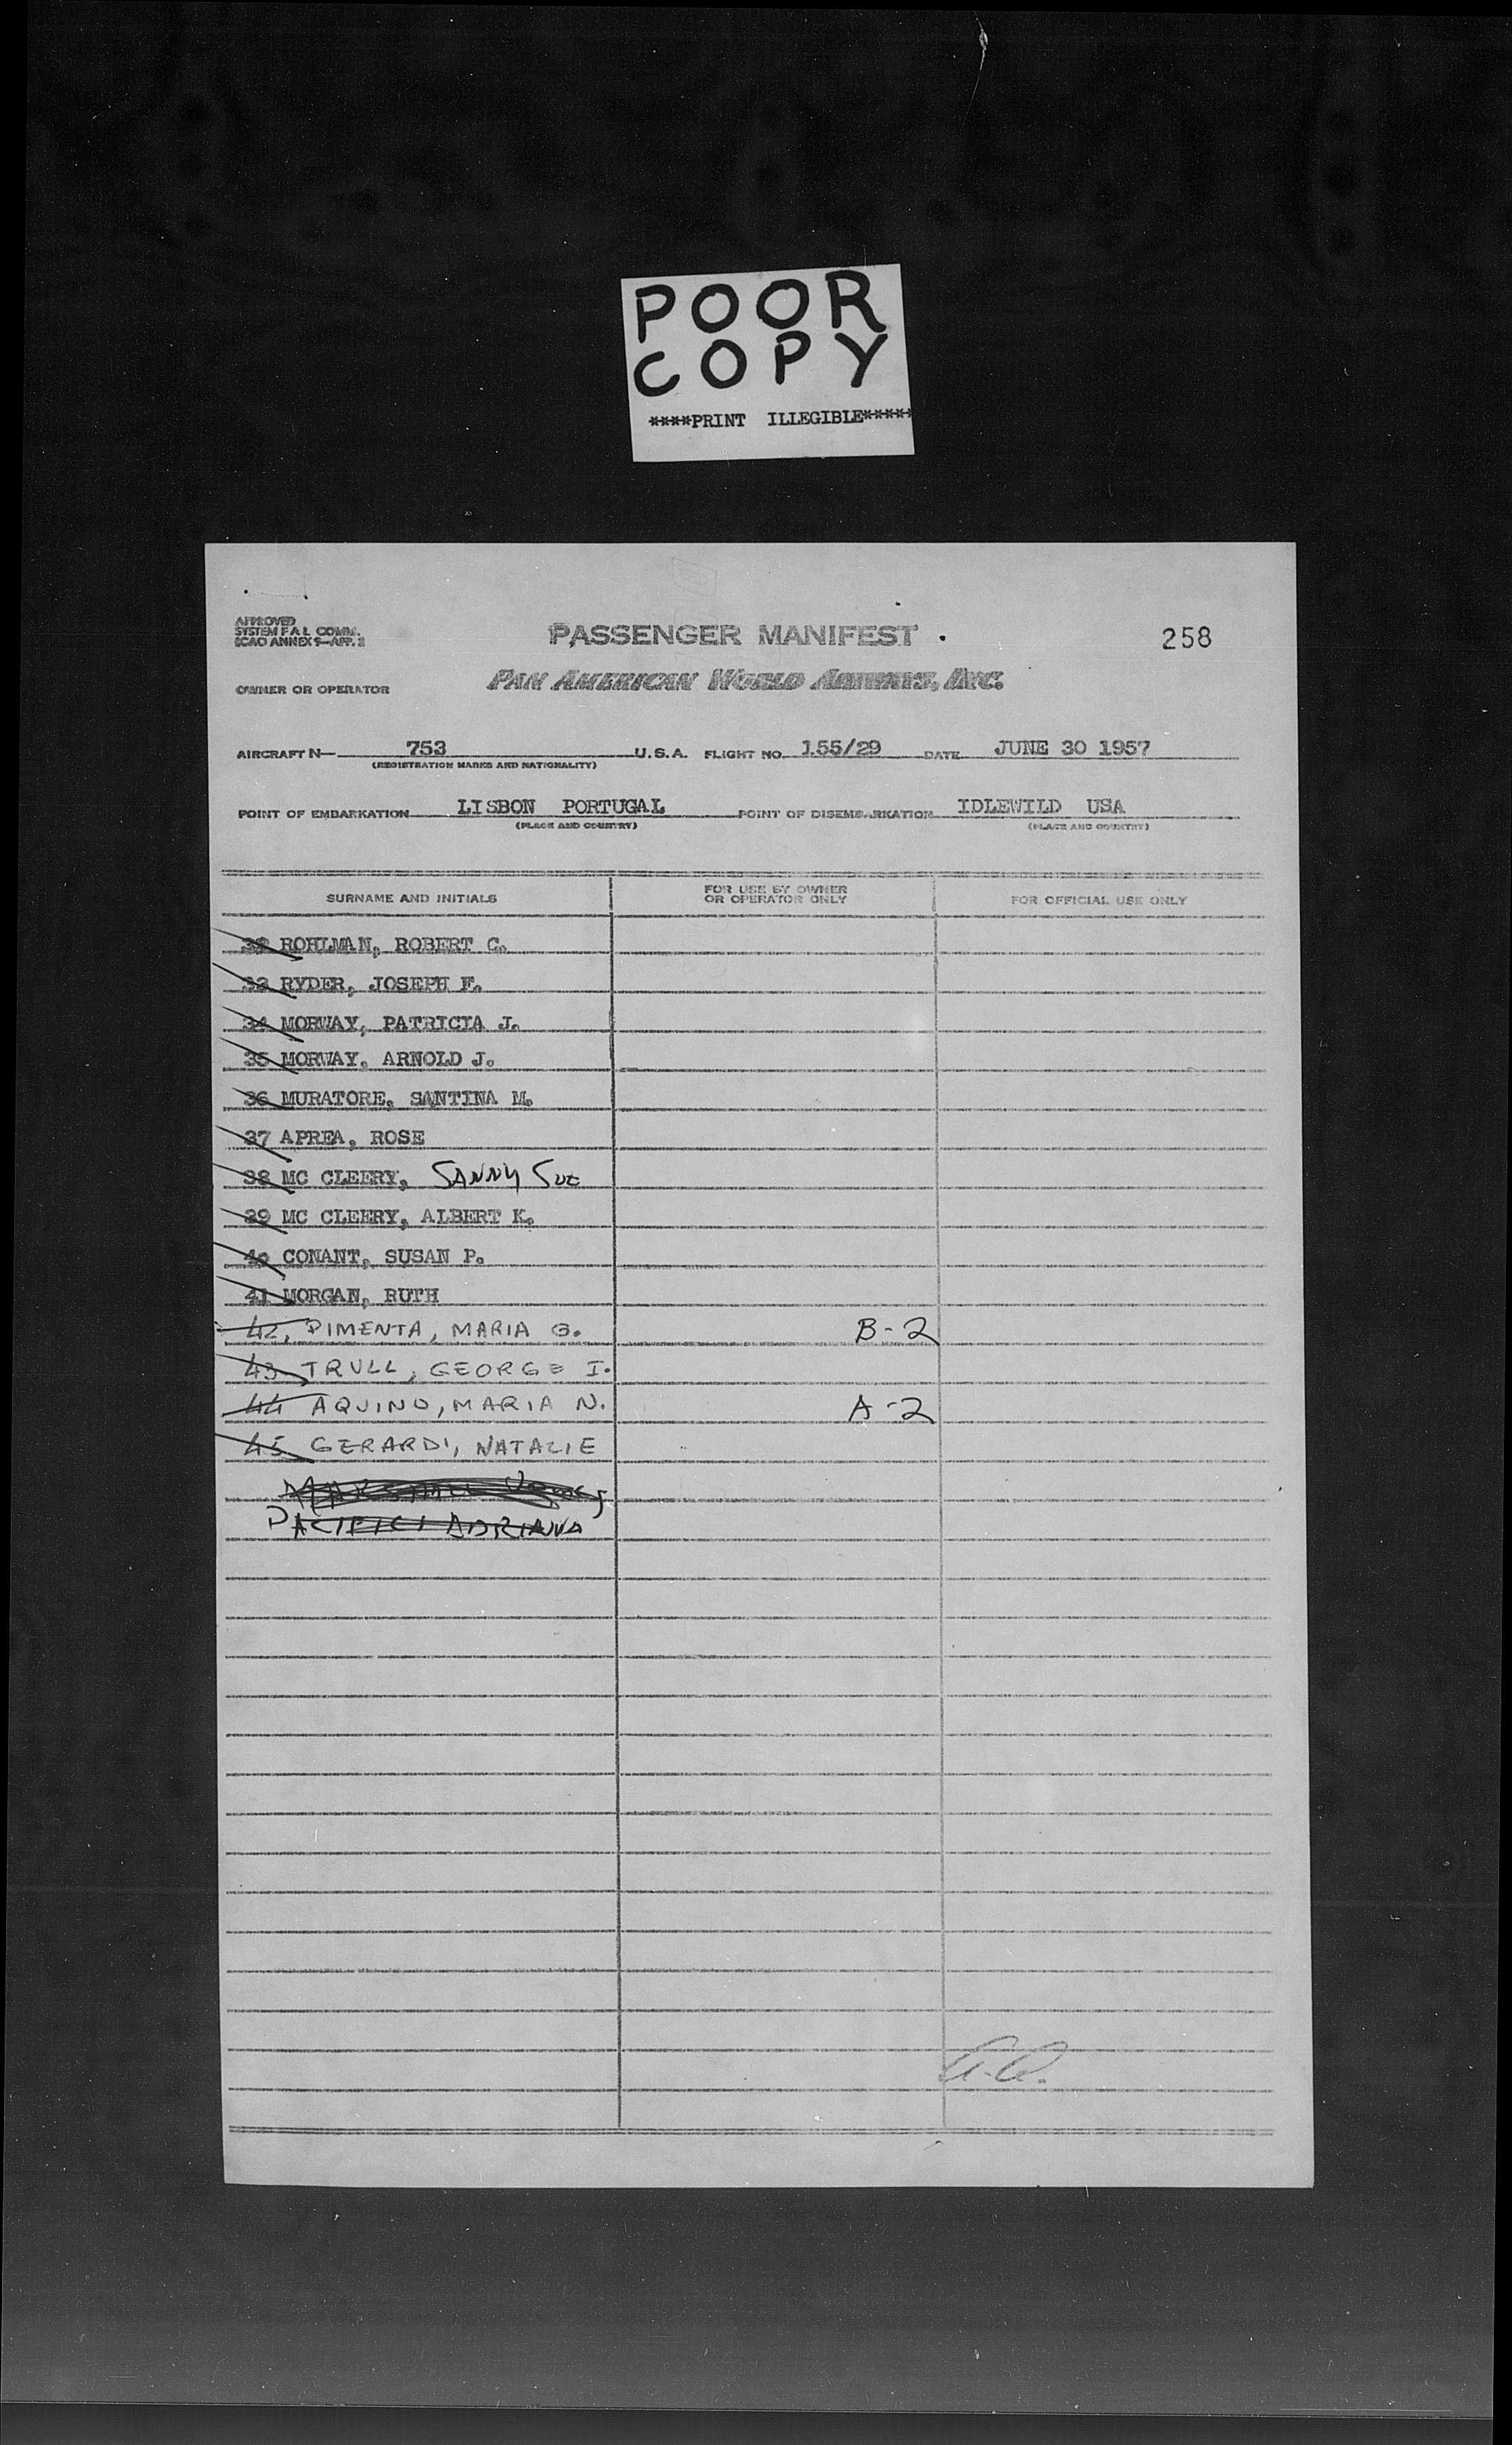 POOR
COPY
****PRINT ILLEGIBLE*****
APPROVED
SYSTEM F A L COMM.
ICAO ANNEX 9—APP. 2
PASSENGER MANIFEST
258
OWNER OR OPERATOR
PAN AMERICAN WORLD AIRWAYS, INC.
AIRCRAFT N— 753 U.S.A. FLIGHT NO. 155/29 DATE JUNE 30 1957
(REGISTRATION MARKS AND NATIONALITY)
POINT OF EMBARKATION LISBON PORTUGAL POINT OF DISEMBARKATION IDLEWILD USA
(PLACE AND COUNTRY) (PLACE AND COUNTRY)
SURNAME AND INITIALS FOR USE BY OWNER OR OPERATOR ONLY FOR OFFICIAL USE ONLY
ROHLMAN, ROBERT C.
33 RYDER, JOSEPH F.
34 MORWAY, PATRICIA J.
35 MORWAY, ARNOLD J.
36 MURATORE, SANTINA M.
37 APREA, ROSE
38 MC CLEERY, SANNY SUE
39 MC CLEERY, ALBERT K.
40 CONANT, SUSAN P.
41 MORGAN, RUTH
42, PIMENTA, MARIA G. B-2
43 TRULL, GEORGE I.
44 AQUINO, MARIA N. A-2
45 GERARDI, NATALIE
MARSHALL
PACIFICI ADRIANA